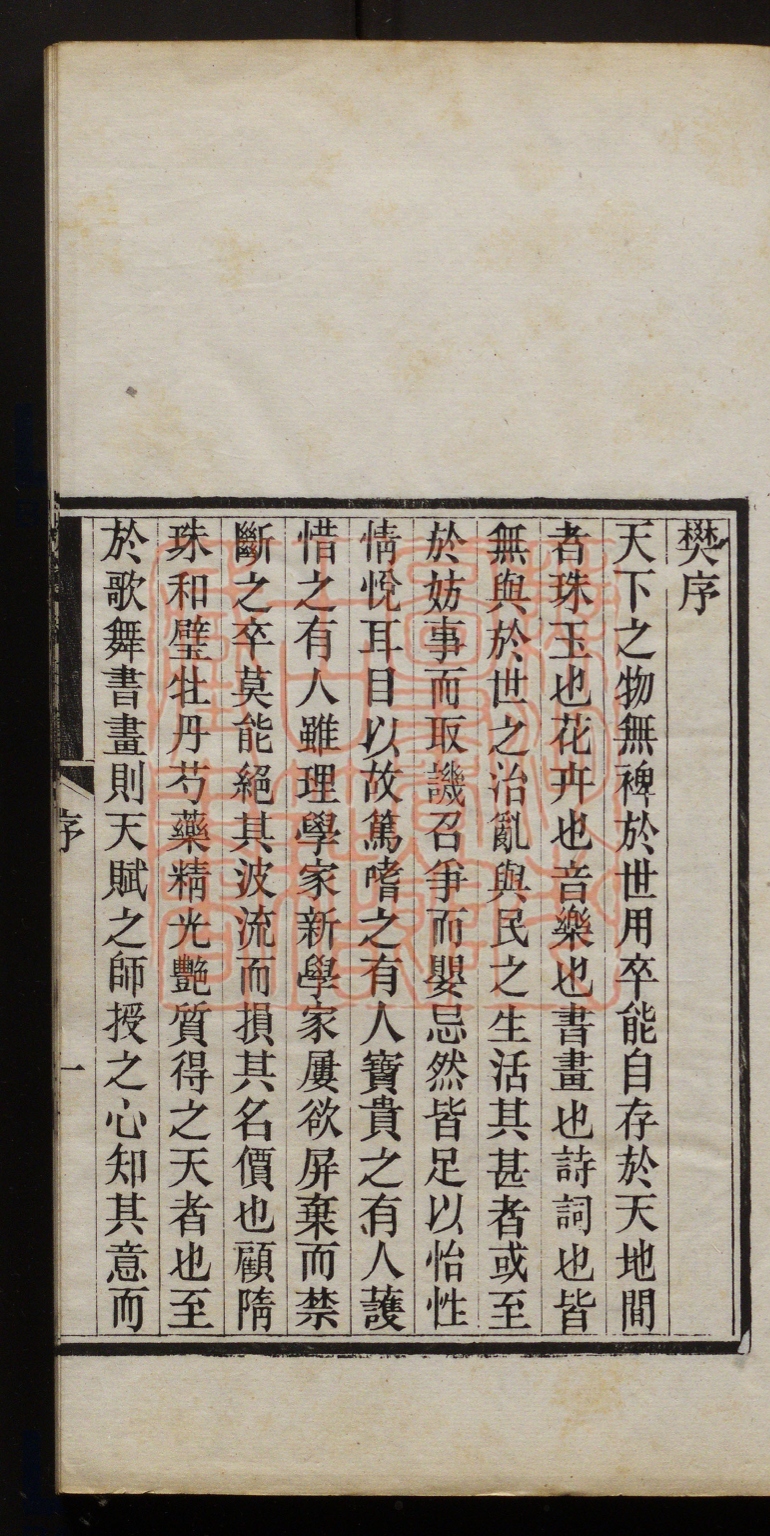 樊序
天下之物無裨於世用卒能自存於天地間
者珠玉也花卉也音樂也書畫也詩詞也皆
無與於世之治亂與民之生活其甚者或至
於妨事而取譏召爭而嬰忌然皆足以怡性
情悅耳目以故篤嗜之有人寶貴之有人護
惜之有人雖理學家新學家屢欲屏棄而禁
斷之卒莫能絕其波流而損其名價也顧隋
珠和璧牡丹芍藥精光艷質得之天者也至
於歌舞書畫則天賦之師授之心知其意而
序
一